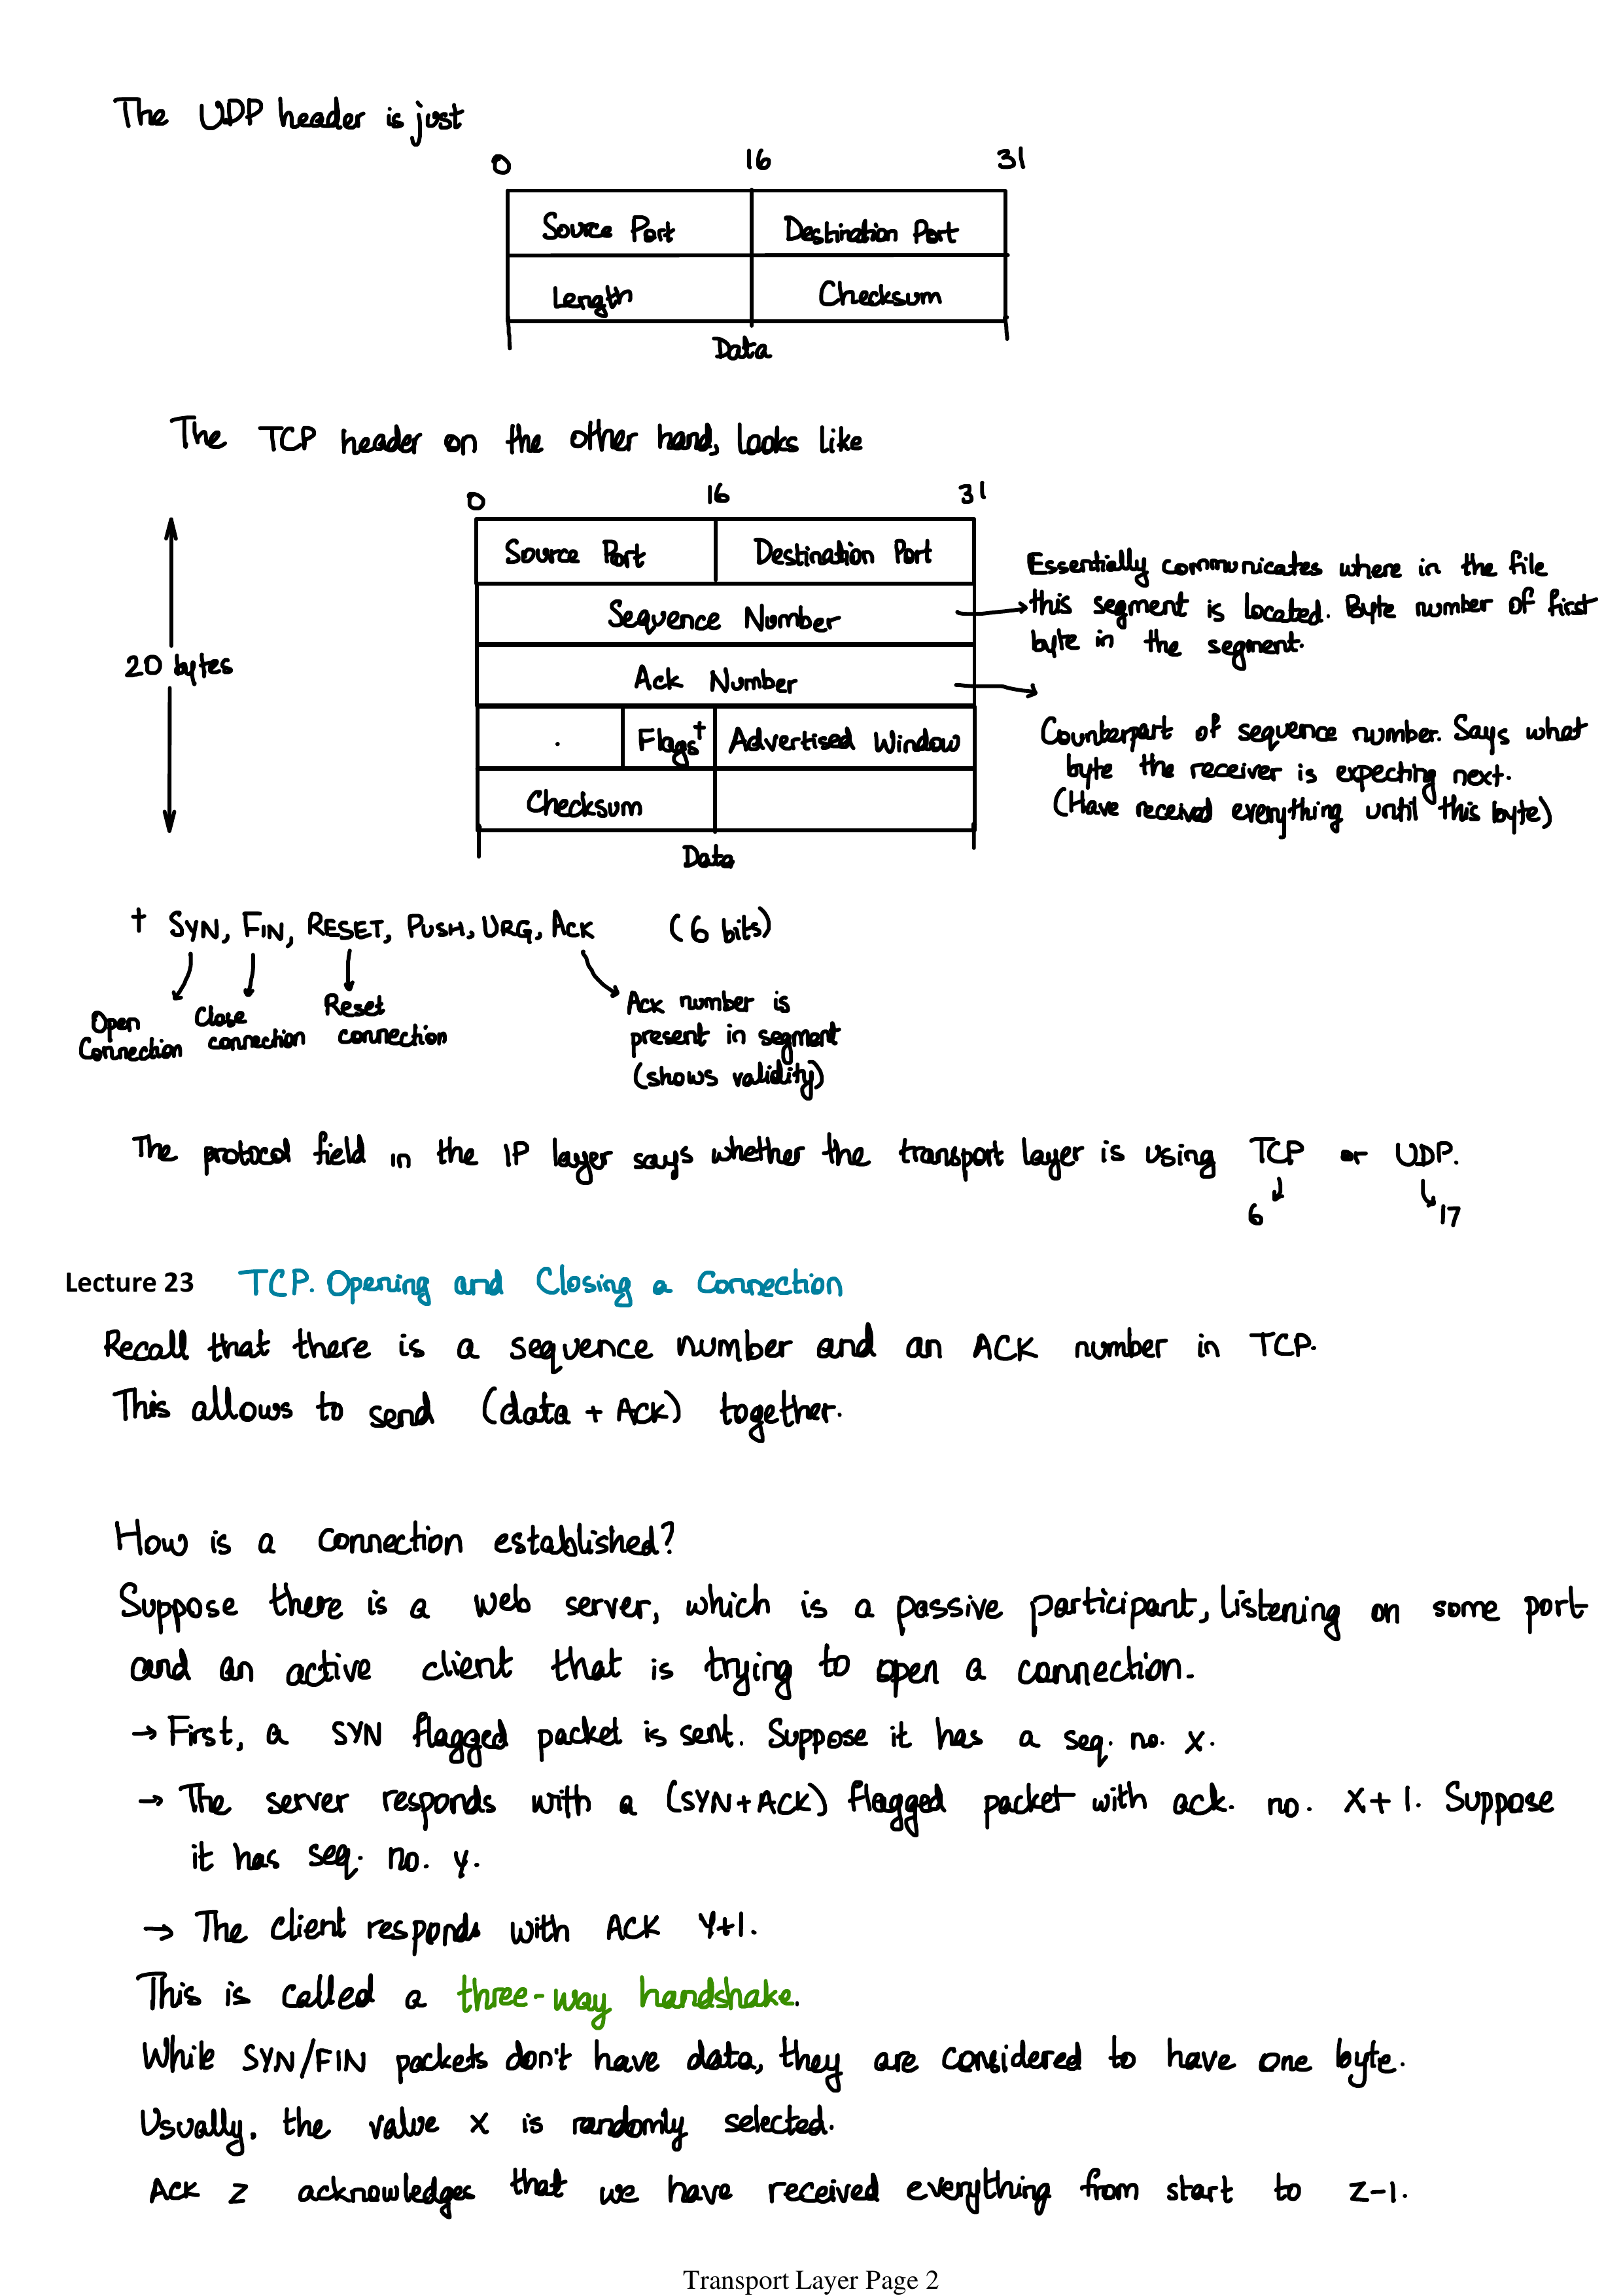 The UDP header is just
0 16 31
Source Port Destination Port
Length Checksum
Data
The TCP header on the other hand, looks like
0 16 31
Source Port Destination Port
Essentially communicates where in the file
this segment is located. Byte number of first
byte in the segment.
Sequence Number
20 bytes
Ack Number
Counterpart of sequence number. Says what
byte the receiver is expecting next.
(Have received everything until this byte)
Flags† Advertised Window
Checksum
Data
† SYN, FIN, RESET, PUSH, URG, ACK (6 bits)
Open
Connection
Close
connection
Reset
connection
Ack number is
present in segment
(shows validity)
The protocol field in the IP layer says whether the transport layer is using TCP or UDP.
6 17
Lecture 23 TCP. Opening and Closing a Connection
Recall that there is a sequence number and an ACK number in TCP.
This allows to send (data + ACK) together.
How is a connection established?
Suppose there is a web server, which is a passive participant, listening on some port
and an active client that is trying to open a connection.
→ First, a SYN flagged packet is sent. Suppose it has a seq. no. x.
→ The server responds with a (SYN+ACK) flagged packet with ack. no. x+1. Suppose
it has seq. no. y.
→ The client responds with ACK y+1.
This is called a three-way handshake.
While SYN/FIN packets don't have data, they are considered to have one byte.
Usually, the value x is randomly selected.
Ack z acknowledges that we have received everything from start to z-1.
Transport Layer Page 2